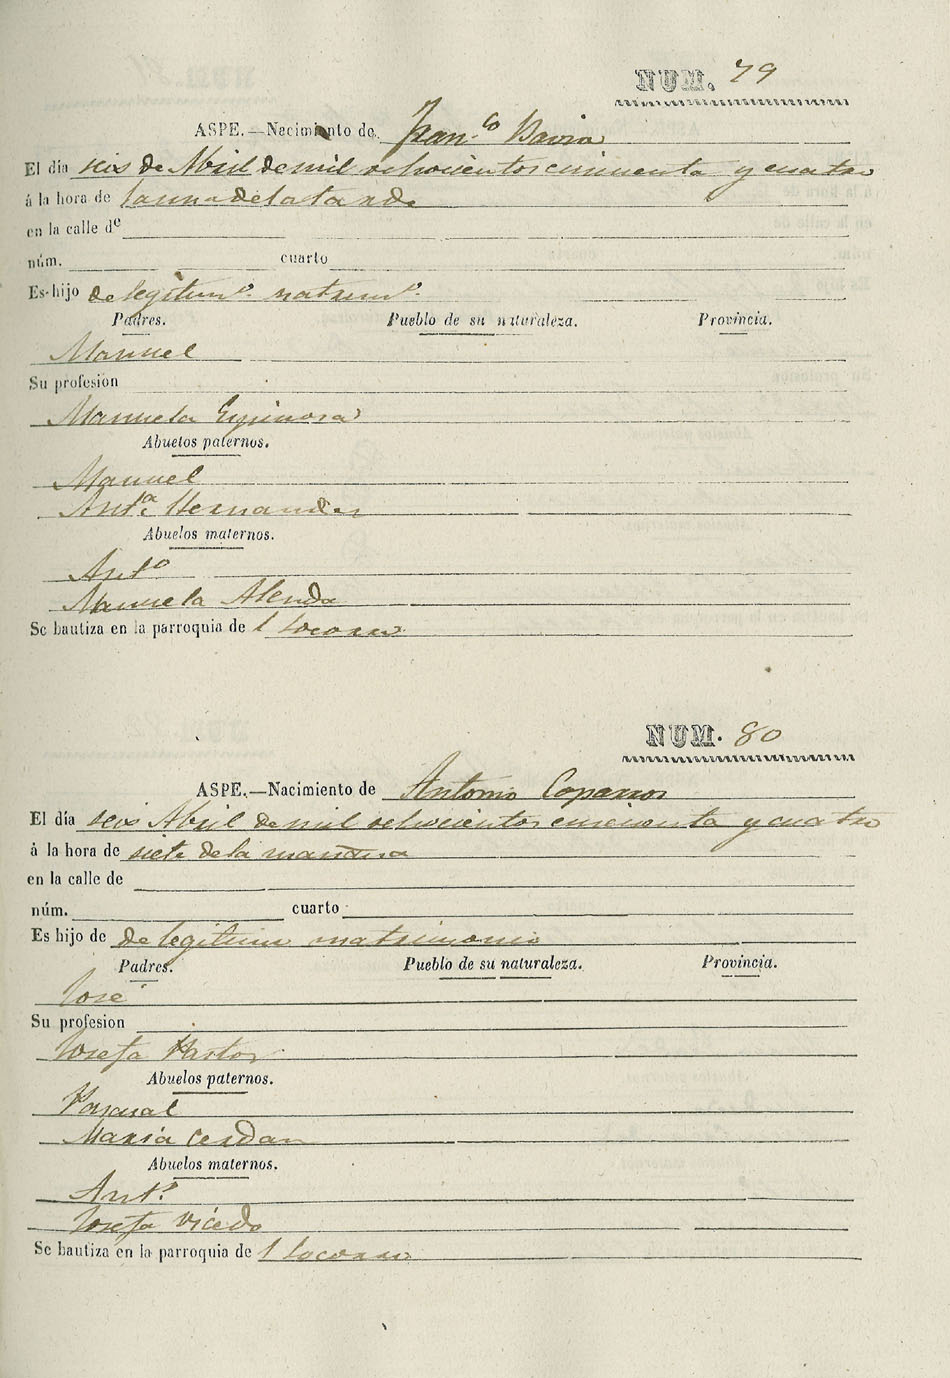 NUM. 79
ASPE.—Nacimiento de Fran.co Davia
El día seis de Abril de mil ochocientos cincuenta y cuatro
á la hora de la una de la tarde
en la calle de
núm. cuarto
Es hijo de legitim.o matrim.o
Padres. Pueblo de su naturaleza. Provincia.
Manuel
Su profesion
Manuela Espinosa
Abuelos paternos.
Manuel
Ant.a Hernandez
Abuelos maternos.
Ant.o
Manuela Alenda
Se bautiza en la parroquia de l Socorro
NUM. 80
ASPE.—Nacimiento de Antonio Caparros
El día seis Abril de mil ochocientos cincuenta y cuatro
á la hora de siete de la mañana
en la calle de
núm. cuarto
Es hijo de de legitimo matrimonio
Padres. Pueblo de su naturaleza. Provincia.
José
Su profesion
Josefa Pastor
Abuelos paternos.
Pascual
Maria Cerdan
Abuelos maternos.
Ant.o
Josefa Vicedo
Se bautiza en la parroquia de l Socorro